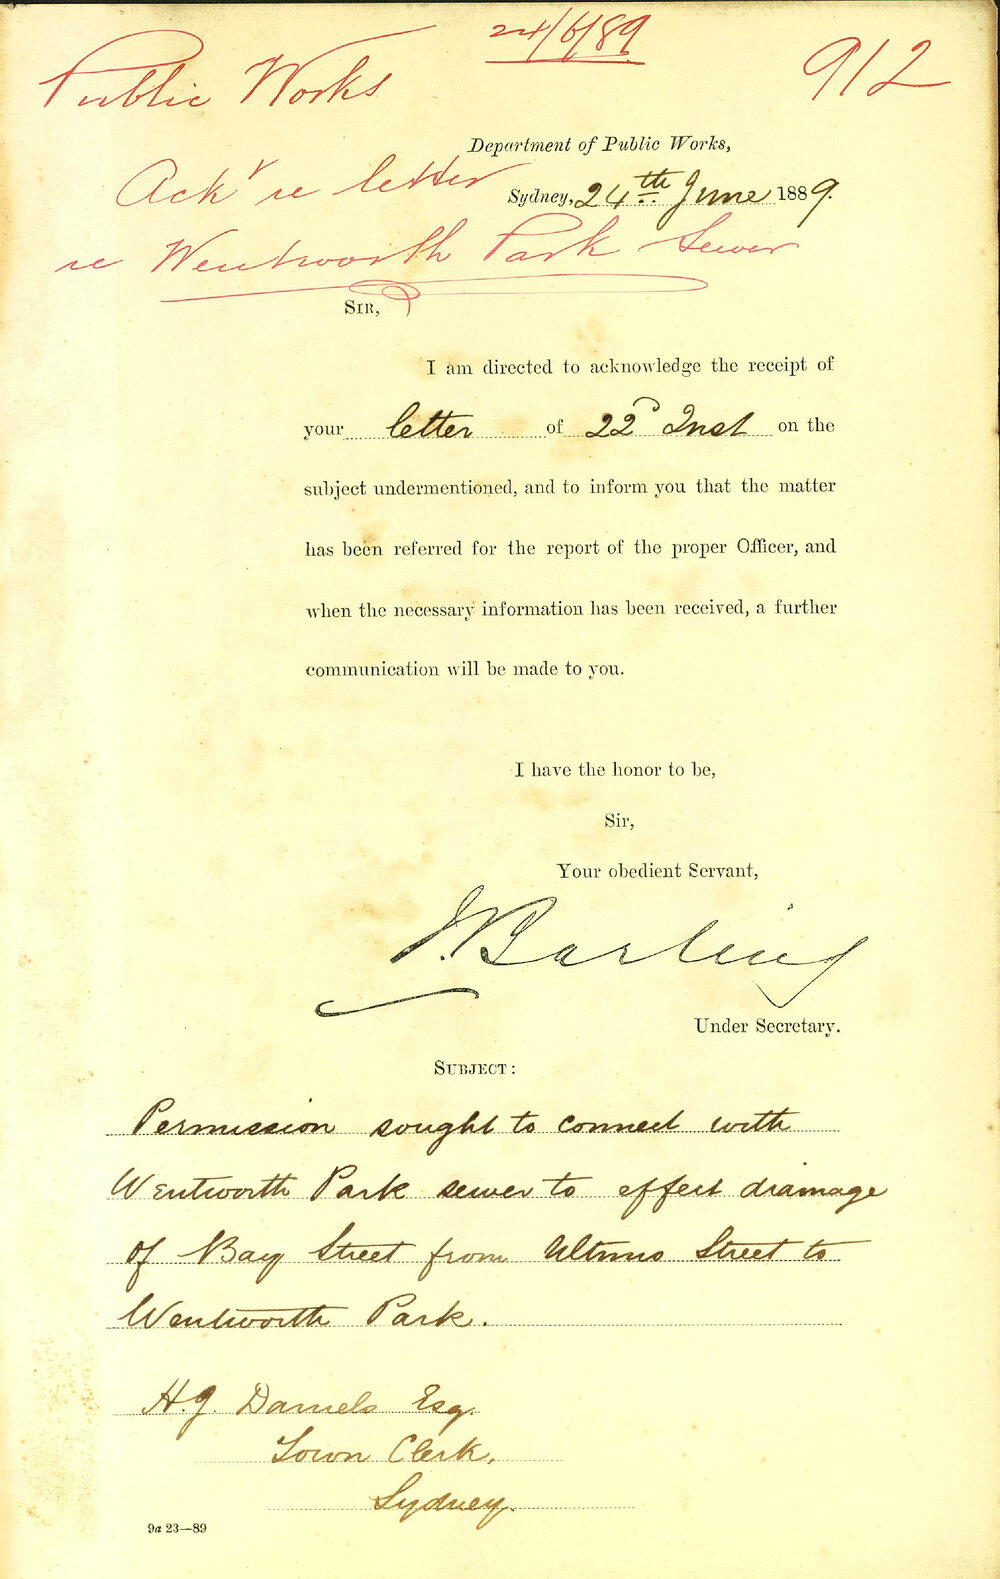 24/6/89
Public Works
912
Department of Public Works,
Ack^r re letter
Sydney, 24th June 1889.
re Wentworth Park Sewer
SIR,
I am directed to acknowledge the receipt of
your letter of 22d Inst on the
subject undermentioned, and to inform you that the matter
has been referred for the report of the proper Officer, and
when the necessary information has been received, a further
communication will be made to you.
I have the honor to be,
Sir,
Your obedient Servant,
J. Barling
Under Secretary.
SUBJECT:
Permission sought to connect with
Wentworth Park sewer to effect drainage
of Bay Street from Ultimo Street to
Wentworth Park.
H.J. Daniels Esq.
Town Clerk.
Sydney.
9a 23—89